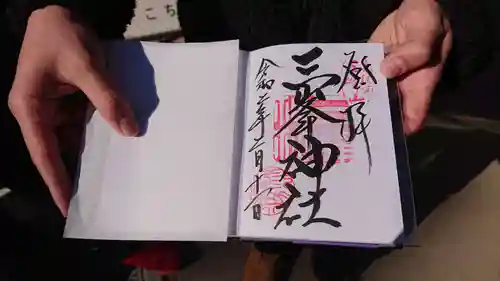 こち
登拝
三峯神社
令和二年二月十一日